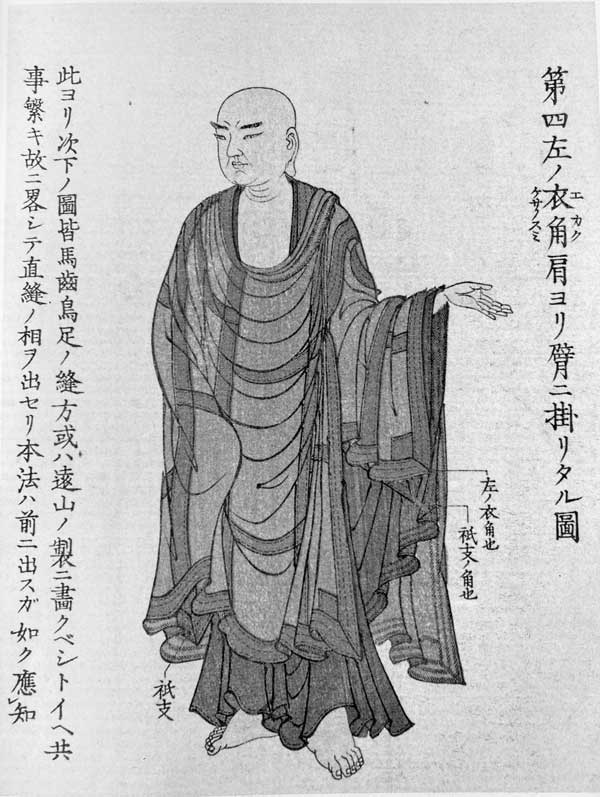 第四左ノ衣角肩ヨリ臂ニ掛リタル圖
エカク
ケサノスミ
左ノ衣角也
祇支ノ角也
祇支
此ヨリ次下ノ圖皆馬齒鳥足ノ縫方或ハ遠山ノ製ニ畵クベシトイヘ共
事繁キ故ニ畧シテ直縫ノ相ヲ出セリ本法ハ前ニ出スガ如ク應知